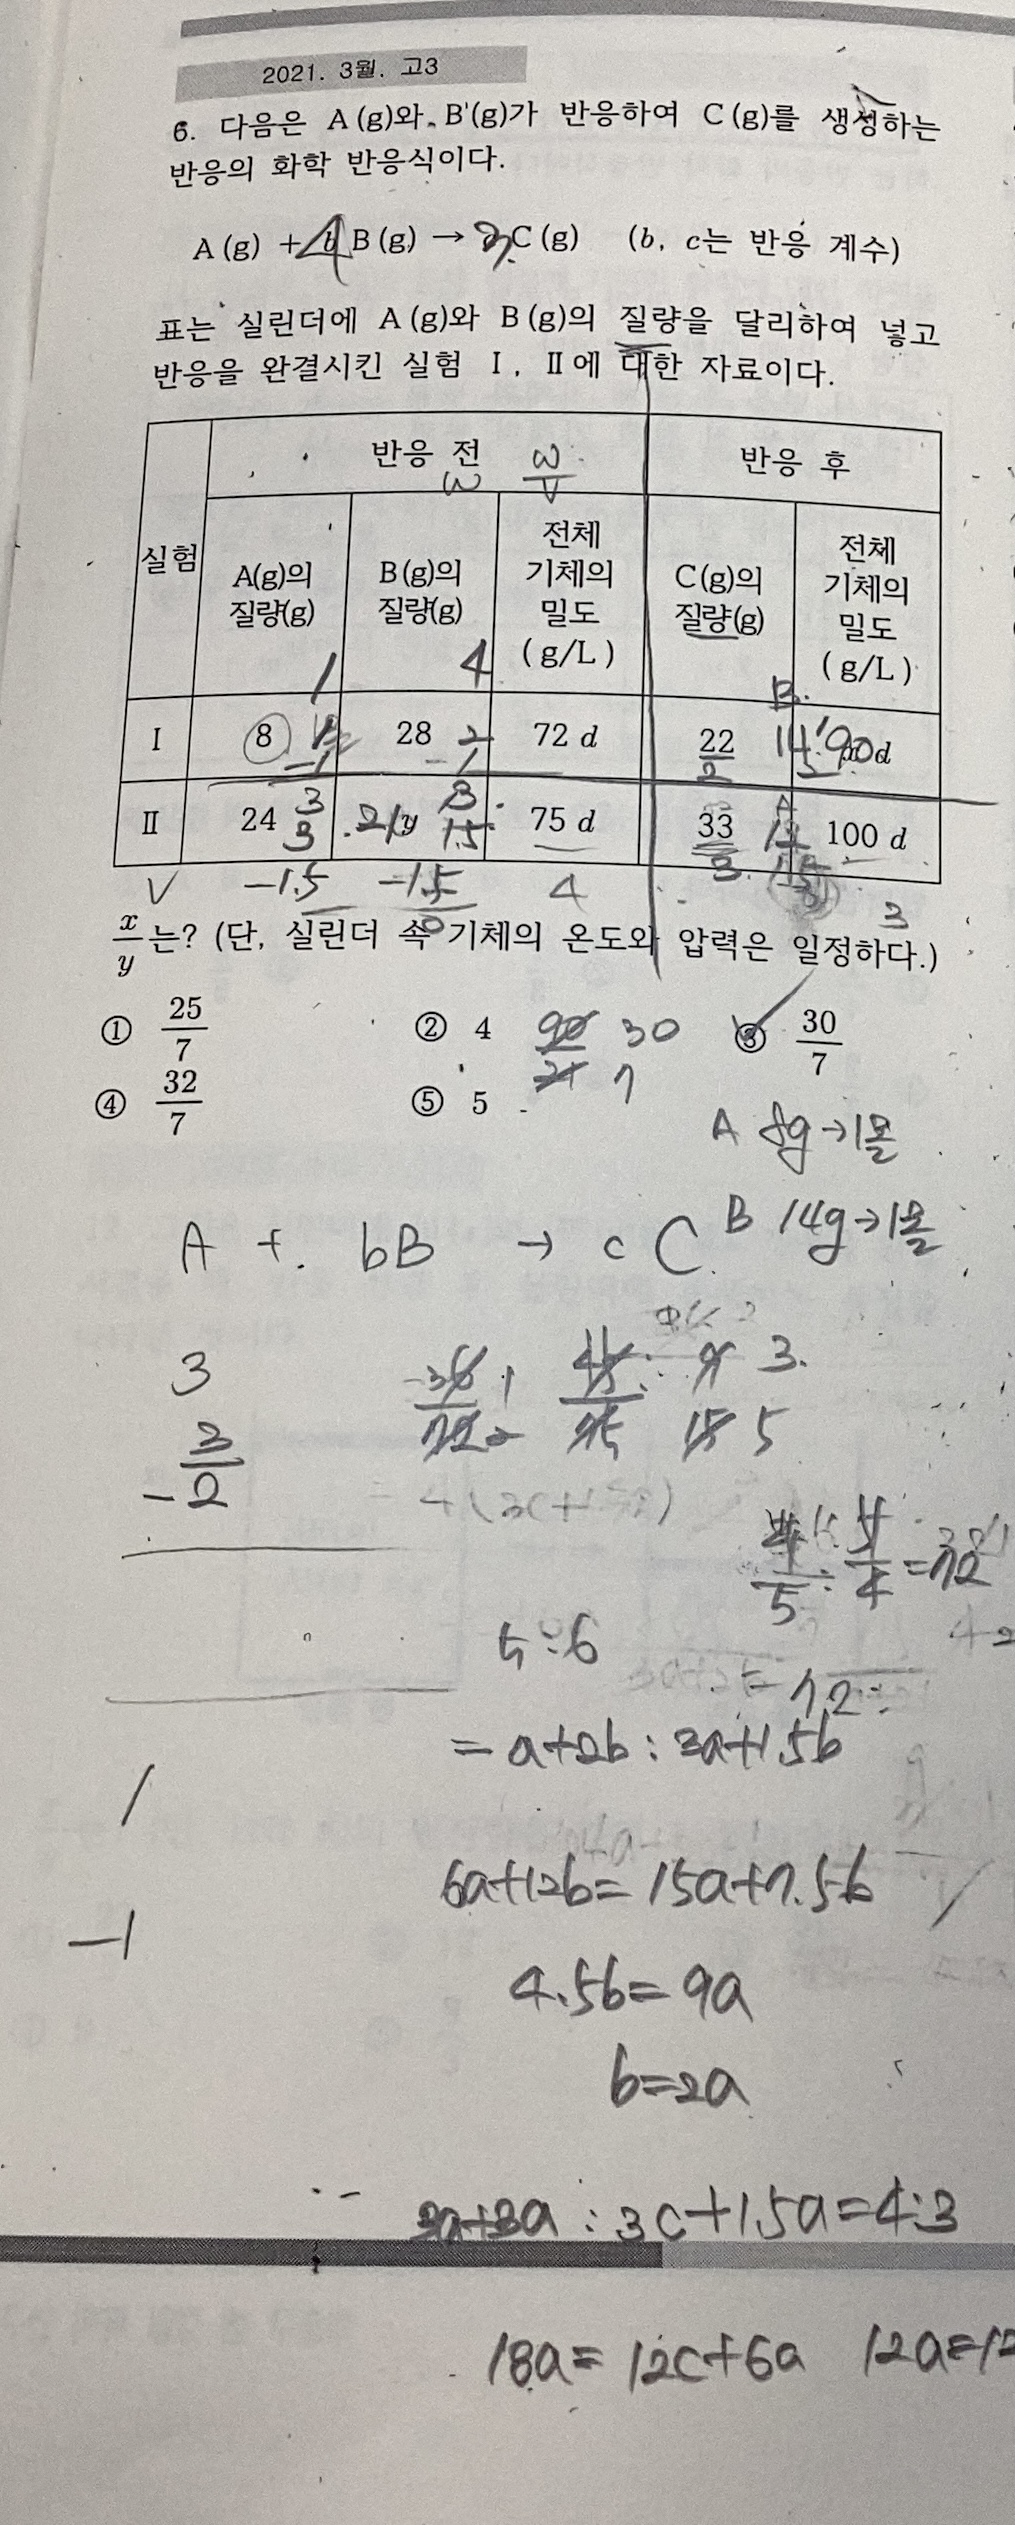 2021. 3월. 고3
6. 다음은 A(g)와 B(g)가 반응하여 C(g)를 생성하는
반응의 화학 반응식이다.
A(g) + 4 B(g) → 2 C(g) (b, c는 반응 계수)
표는 실린더에 A(g)와 B(g)의 질량을 달리하여 넣고
반응을 완결시킨 실험 Ⅰ, Ⅱ에 대한 자료이다.
반응 전 w/V 반응 후
w
실험 A(g)의 질량(g) B(g)의 질량(g) 전체 기체의 밀도 (g/L) C(g)의 질량(g) 전체 기체의 밀도 (g/L)
1 4 B
Ⅰ 8 28 72 d 22 14 90 d
-1 2
Ⅱ 24 3 21 y 1.5 75 d 33 12 100 d
V -1.5 -1.5 4 3
0 3
x/y 는? (단, 실린더 속 기체의 온도와 압력은 일정하다.)
① 25/7 ② 4 90/21 30/7 ③ 30/7
④ 32/7 ⑤ 5
A 8g→1몰
A + bB → cC B 14g→1몰
3 36/72 1 3
3/2 15 5
5:6
= 72
= a+2b : 3a+1.5b
1
6a+12b = 15a+7.5b
-1
4.5b = 9a
b=2a
3a+3a : 3c+1.5a=4:3
18a = 12c+6a 12a=12